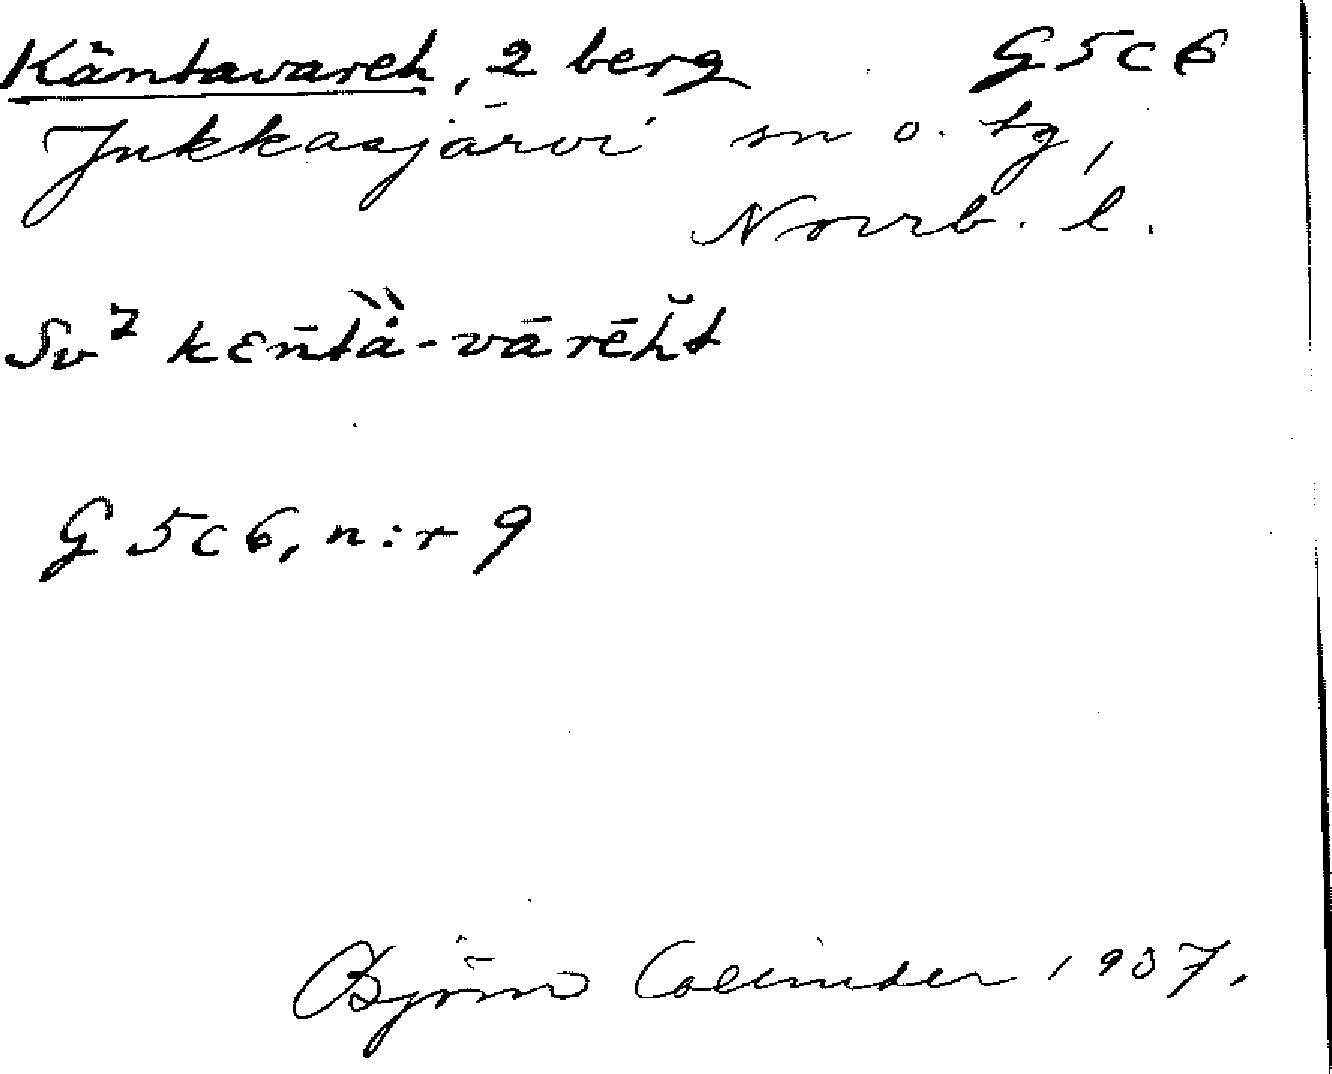 Käntavareh, 2 berg G5c6
Jukkasjärvi sn o. tg,
Norrb. l.
Sv⁷ kεn̄tȧ̀̀-vārēh̆t
G 5c6, n:r 9
Björn Collinder 1937.